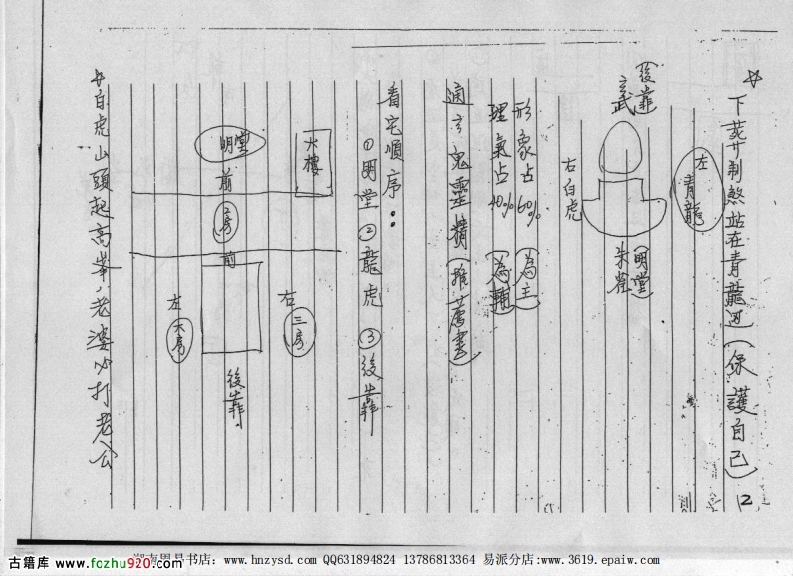 ☆下葬制煞站在青龍边(保護自己)
2
左青龍
後靠
玄武
明堂
朱雀
右白虎
形象占60%(為主)
理氣占40%(為輔)
通玄鬼靈精(推薦書)
看宅順序:
①明堂②龍虎③後靠
大樓
右三房
明堂
前
二房
前
後靠
左大房
☆白虎山頭起高峯,老婆必打老公
古籍库 www.fozhu920.com
湖南周易书店:www.hnzysd.com QQ631894824 13786813364 易派分店:www.3619.epaiw.com